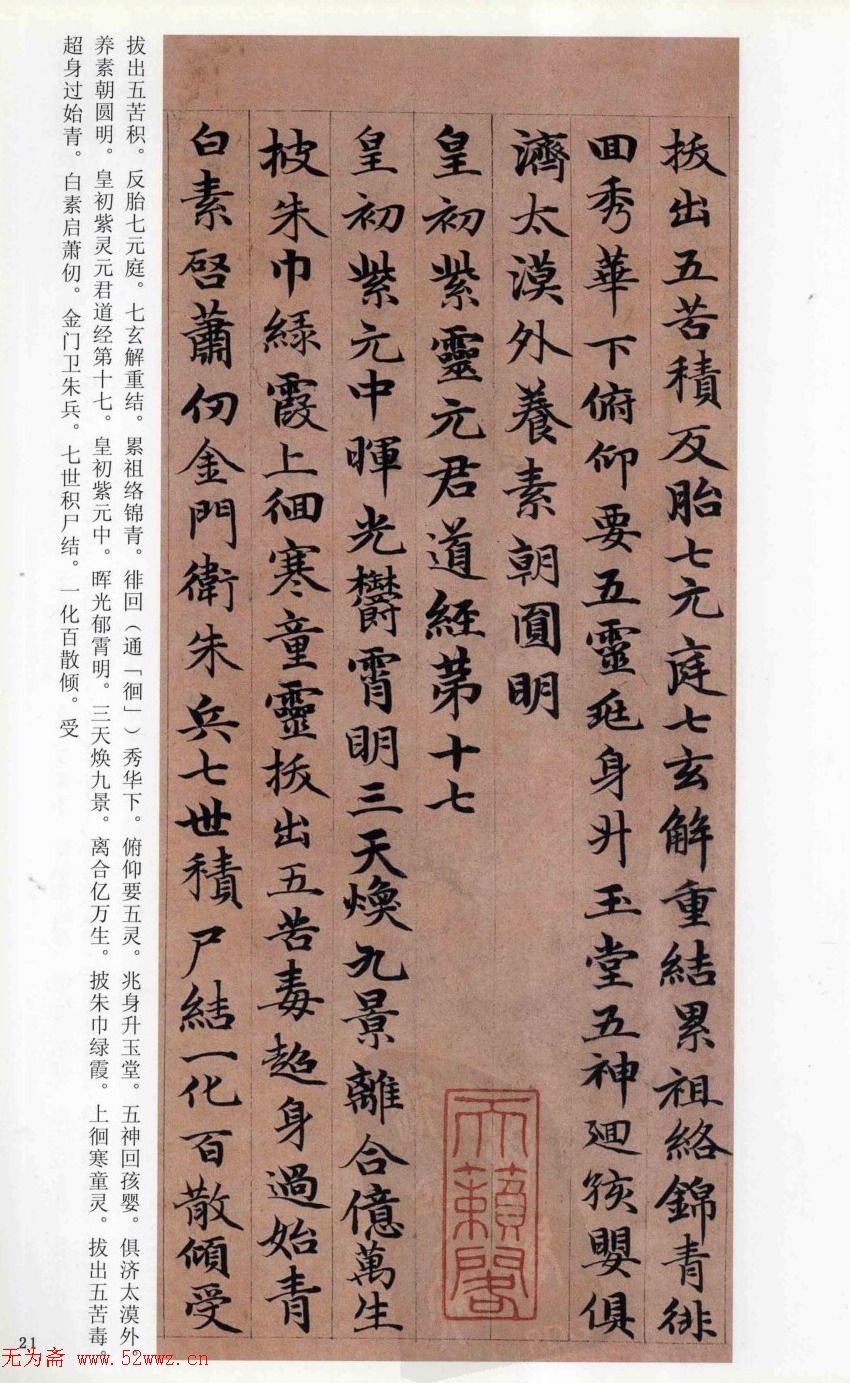 拔出五苦積反胎七元庭七玄解重結累祖絡錦青徘
回秀華下俯仰要五靈兆身升玉堂五神廻孩嬰俱
濟太漠外養素朝圓明
皇初紫靈元君道經苐十七
皇初紫元中暉光欝霄明三天煥九景離合億萬生
披朱巾綠霞上徊寒童靈拔出五苦毒超身過始青
白素啓蕭仞金門衛朱兵七世積尸結一化百散傾受
天籟閣
拔出五苦积。反胎七元庭。七玄解重结。累祖络锦青。徘回（通「徊」）秀华下。俯仰要五灵。兆身升玉堂。五神回孩婴。俱济太漠外。
养素朝圆明。皇初紫灵元君道经第十七。皇初紫元中。晖光郁霄明。三天焕九景。离合亿万生。披朱巾绿霞。上徊寒童灵。拔出五苦毒。
超身过始青。白素启萧仞。金门卫朱兵。七世积尸结。一化百散倾。受
21
无为斋 www.52wwz.cn